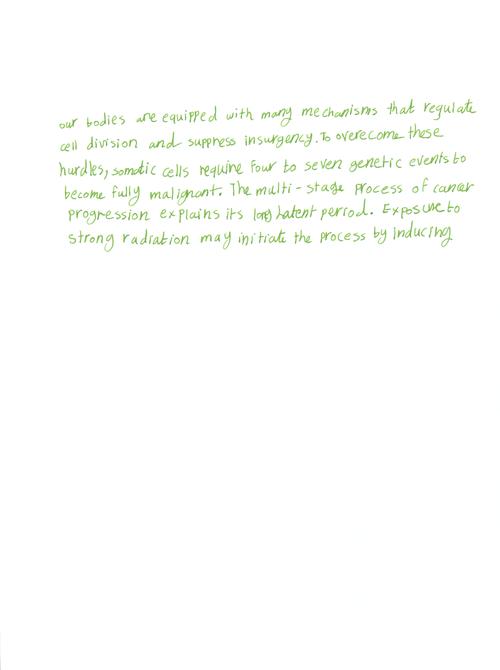 our bodies are equipped with many mechanisms that regulate
cell division and suppress insurgency. To overcome these
hurdles, somatic cells require four to seven genetic events to
become fully malignant. The multi-stage process of cancer
progression explains its long latent period. Exposure to
strong radiation may initiate the process by inducing